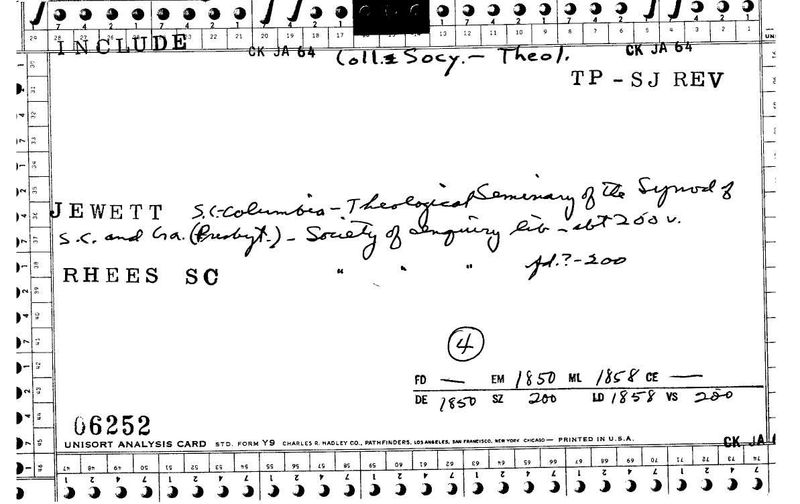 INCLUDE
CK JA 64
CK JA 64
Coll. & Socy. – Theol.
TP - SJ REV
JEWETT S.C.-Columbia – Theological Seminary of the Synod of
S.C. and Ga. (Presbyt.) – Society of Inquiry lib – abt 200 v.
RHEES SC " " " fd.? – 200
4
FD — EM 1850 ML 1858 CE —
DE 1850 SZ 200 LD 1858 VS 200
06252
UNISORT ANALYSIS CARD STD. FORM Y9 CHARLES R. HADLEY CO., PATHFINDERS, LOS ANGELES, SAN FRANCISCO, NEW YORK CHICAGO — PRINTED IN U.S.A.
CK JA